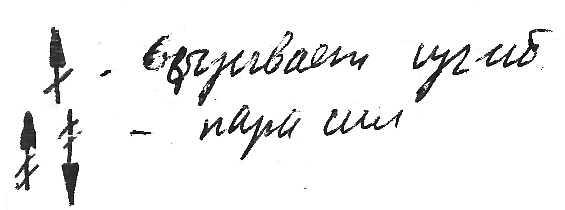 - вызывает изгиб
- пара сил